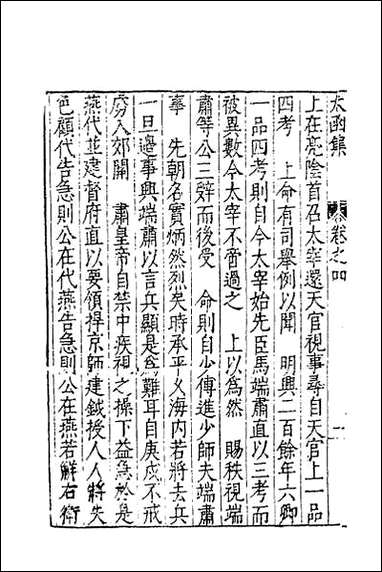 太函集　卷之四　一
上在亮陰首召太宰還天官視事尋自天官上一品
四考　上命有司舉例以聞　明興二百餘年六卿
一品四考則自今太宰始先臣馬端肅直以三考而
被異數今太宰不啻過之　上以爲然　賜秩視端
肅等公三辭而後受　命則自少傅進少師夫端肅
事　先朝名實炳然烈矣時承平乂海内若將去兵
一旦邊事興端肅以言兵顯是爲難耳自庚戍不戒
虜入郊關　肅皇帝自禁中疾視之操下益急於是
燕代並建督府直以要領捍京師建鉞授人人將失
色顧代告急則公在代燕告急則公在燕若解右衛